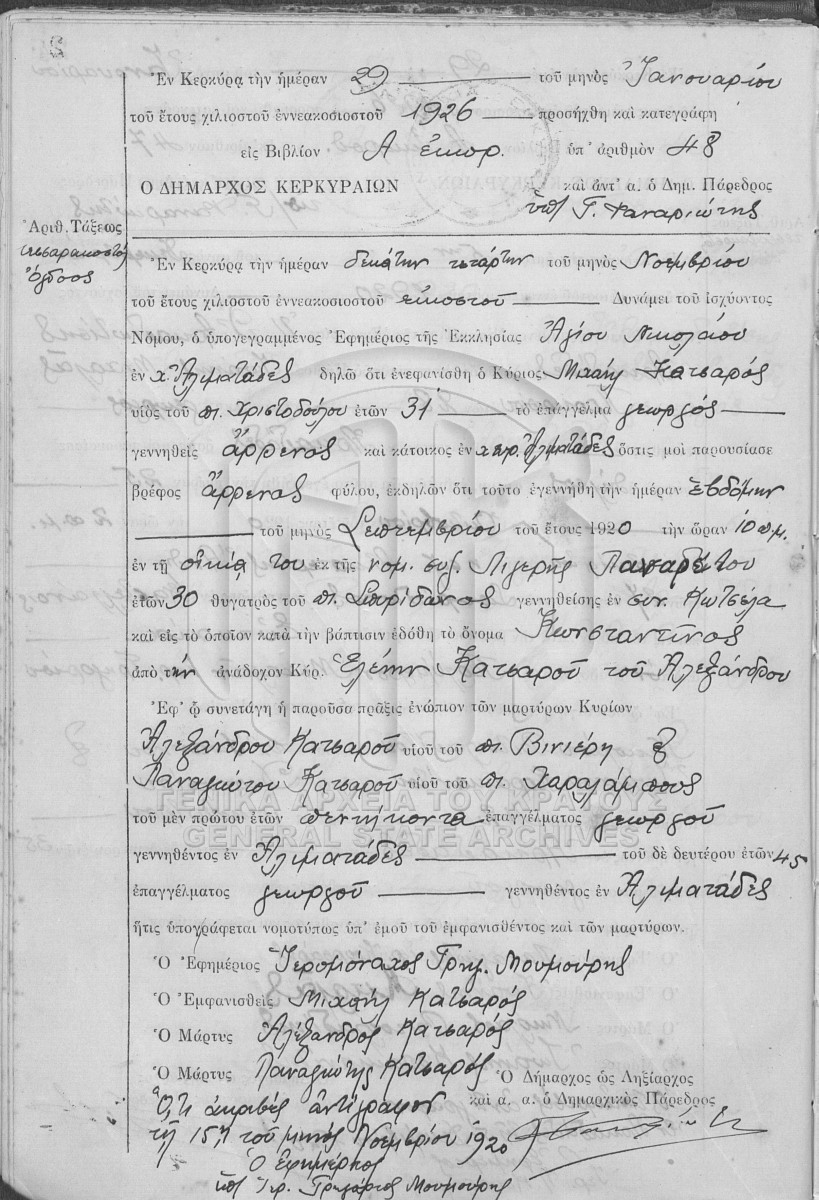 Ἐν Κερκύρᾳ τὴν ἡμέραν 29 τοῦ μηνὸς Ἰανουαρίου
τοῦ ἔτους χιλιοστοῦ ἐννεακοσιοστοῦ 1926 προσήχθη καὶ κατεγράφη
εἰς Βιβλίον Α ἐκκρ. ὑπ' ἀριθμὸν 48
Ο ΔΗΜΑΡΧΟΣ ΚΕΡΚΥΡΑΙΩΝ καὶ ἀντ' α. ὁ Δημ. Πάρεδρος
ὑπ/ Γ. Φαναριώτης
Ἀριθ. Τάξεως
τεσσαρακοστὸς
ὄγδοος
Ἐν Κερκύρᾳ τὴν ἡμέραν δεκάτην τετάρτην τοῦ μηνὸς Νοεμβρίου
τοῦ ἔτους χιλιοστοῦ ἐννεακοσιοστοῦ εἰκοστοῦ Δυνάμει τοῦ ἰσχύοντος
Νόμου, ὁ ὑπογεγραμμένος Ἐφημέριος τῆς Ἐκκλησίας Ἁγίου Νικολάου
ἐν χ. Ἀλιματάδες δηλῶ ὅτι ἐνεφανίσθη ὁ Κύριος Μιχαήλ Κατσαρός
υἱὸς τοῦ π. Χριστοδούλου ἐτῶν 31 τὸ ἐπάγγελμα γεωργός
γεννηθεὶς ἄρρενος καὶ κάτοικος ἐν χωρ. Ἀλιματάδες ὅστις μοὶ παρουσίασε
βρέφος ἄρρενος φύλου, ἐκδηλῶν ὅτι τοῦτο ἐγεννήθη τὴν ἡμέραν ἑβδόμην
τοῦ μηνὸς Σεπτεμβρίου τοῦ ἔτους 1920 τὴν ὥραν 10 π.μ.
ἐν τῇ οἰκίᾳ του ἐκ τῆς νομ. συζ. Λιγερῆς Παναρέτου
ἐτῶν 30 θυγατρὸς τοῦ π. Σπιρίδωνος γεννηθείσης ἐν συν. Κωτσέλα
καὶ εἰς τὸ ὁποῖον κατὰ τὴν βάπτισιν ἐδόθη τὸ ὄνομα Κωνσταντῖνος
ἀπὸ τὴν ἀνάδοχον Κύρ. Ἑλένην Κατσαροῦ τοῦ Ἀλεξάνδρου
Ἐφ' ᾧ συνετάγη ἡ παροῦσα πρᾶξις ἐνώπιον τῶν μαρτύρων Κυρίων
Ἀλεξάνδρου Κατσαροῦ υἱοῦ τοῦ π. Βινιέρη &
Παναγιώτου Κατσαροῦ υἱοῦ τοῦ π. Χαραλάμπους
ΓΕΝΙΚΑ ΑΡΧΕΙΑ ΤΟΥ ΚΡΑΤΟΥΣ
τοῦ μὲν πρώτου ἐτῶν πεντήκοντα ἐπαγγέλματος γεωργοῦ
GENERAL STATE ARCHIVES
γεννηθέντος ἐν Ἀλιματάδες τοῦ δὲ δευτέρου ἐτῶν 45
ἐπαγγέλματος γεωργοῦ γεννηθέντος ἐν Ἀλιματάδες
ἥτις ὑπογράφεται νομοτύπως ὑπ' ἐμοῦ τοῦ ἐμφανισθέντος καὶ τῶν μαρτύρων.
Ὁ Ἐφημέριος Ἱερομόναχος Γρηγ. Μουμούρης
Ὁ Ἐμφανισθεὶς Μιχαήλ Κατσαρός
Ὁ Μάρτυς Ἀλέξανδρος Κατσαρός
Ὁ Μάρτυς Παναγιώτης Κατσαρός
Ὁ Δήμαρχος ὡς Ληξίαρχος
Ὅτι ἀκριβές ἀντίγραφον καὶ α. α. ὁ Δημαρχικὸς Πάρεδρος
τῇ 15ῃ τοῦ μηνὸς Νοεμβρίου 1920
Ὁ Ἐφημέριος
ὑπ/ Ἱερ. Γρηγόριος Μουμούρης